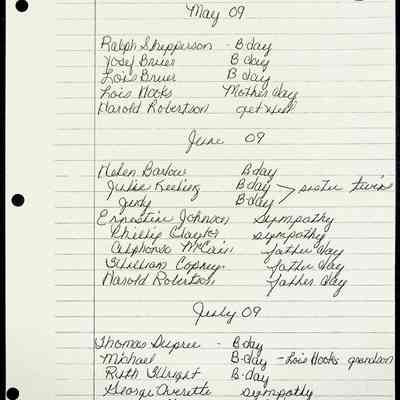 May 09
Ralph Shepperson - Bday
Yosef Bruer Bday
Lois Bruer Bday
Lois Hooks Mother day
Harold Robertson get well
June 09
Helen Barlow Bday
Julie Keeling Bday
Judy Bday > sister twins
Ernestine Johnson Sympathy
Phillip Claytor sympathy
Alphonso McCain father day
William father day
Harold Robertson father day
July 09
Thomas Dupree - Bday
Michael B-day - Lois Hooks grandson
Ruth Wright B-day
George Overette sympathy